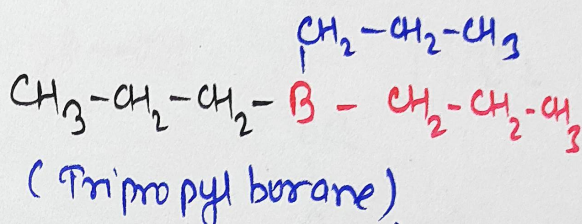 CH₂-CH₂-CH₃
CH₃-CH₂-CH₂-B-CH₂-CH₂-CH₃
(Tripropyl borane)